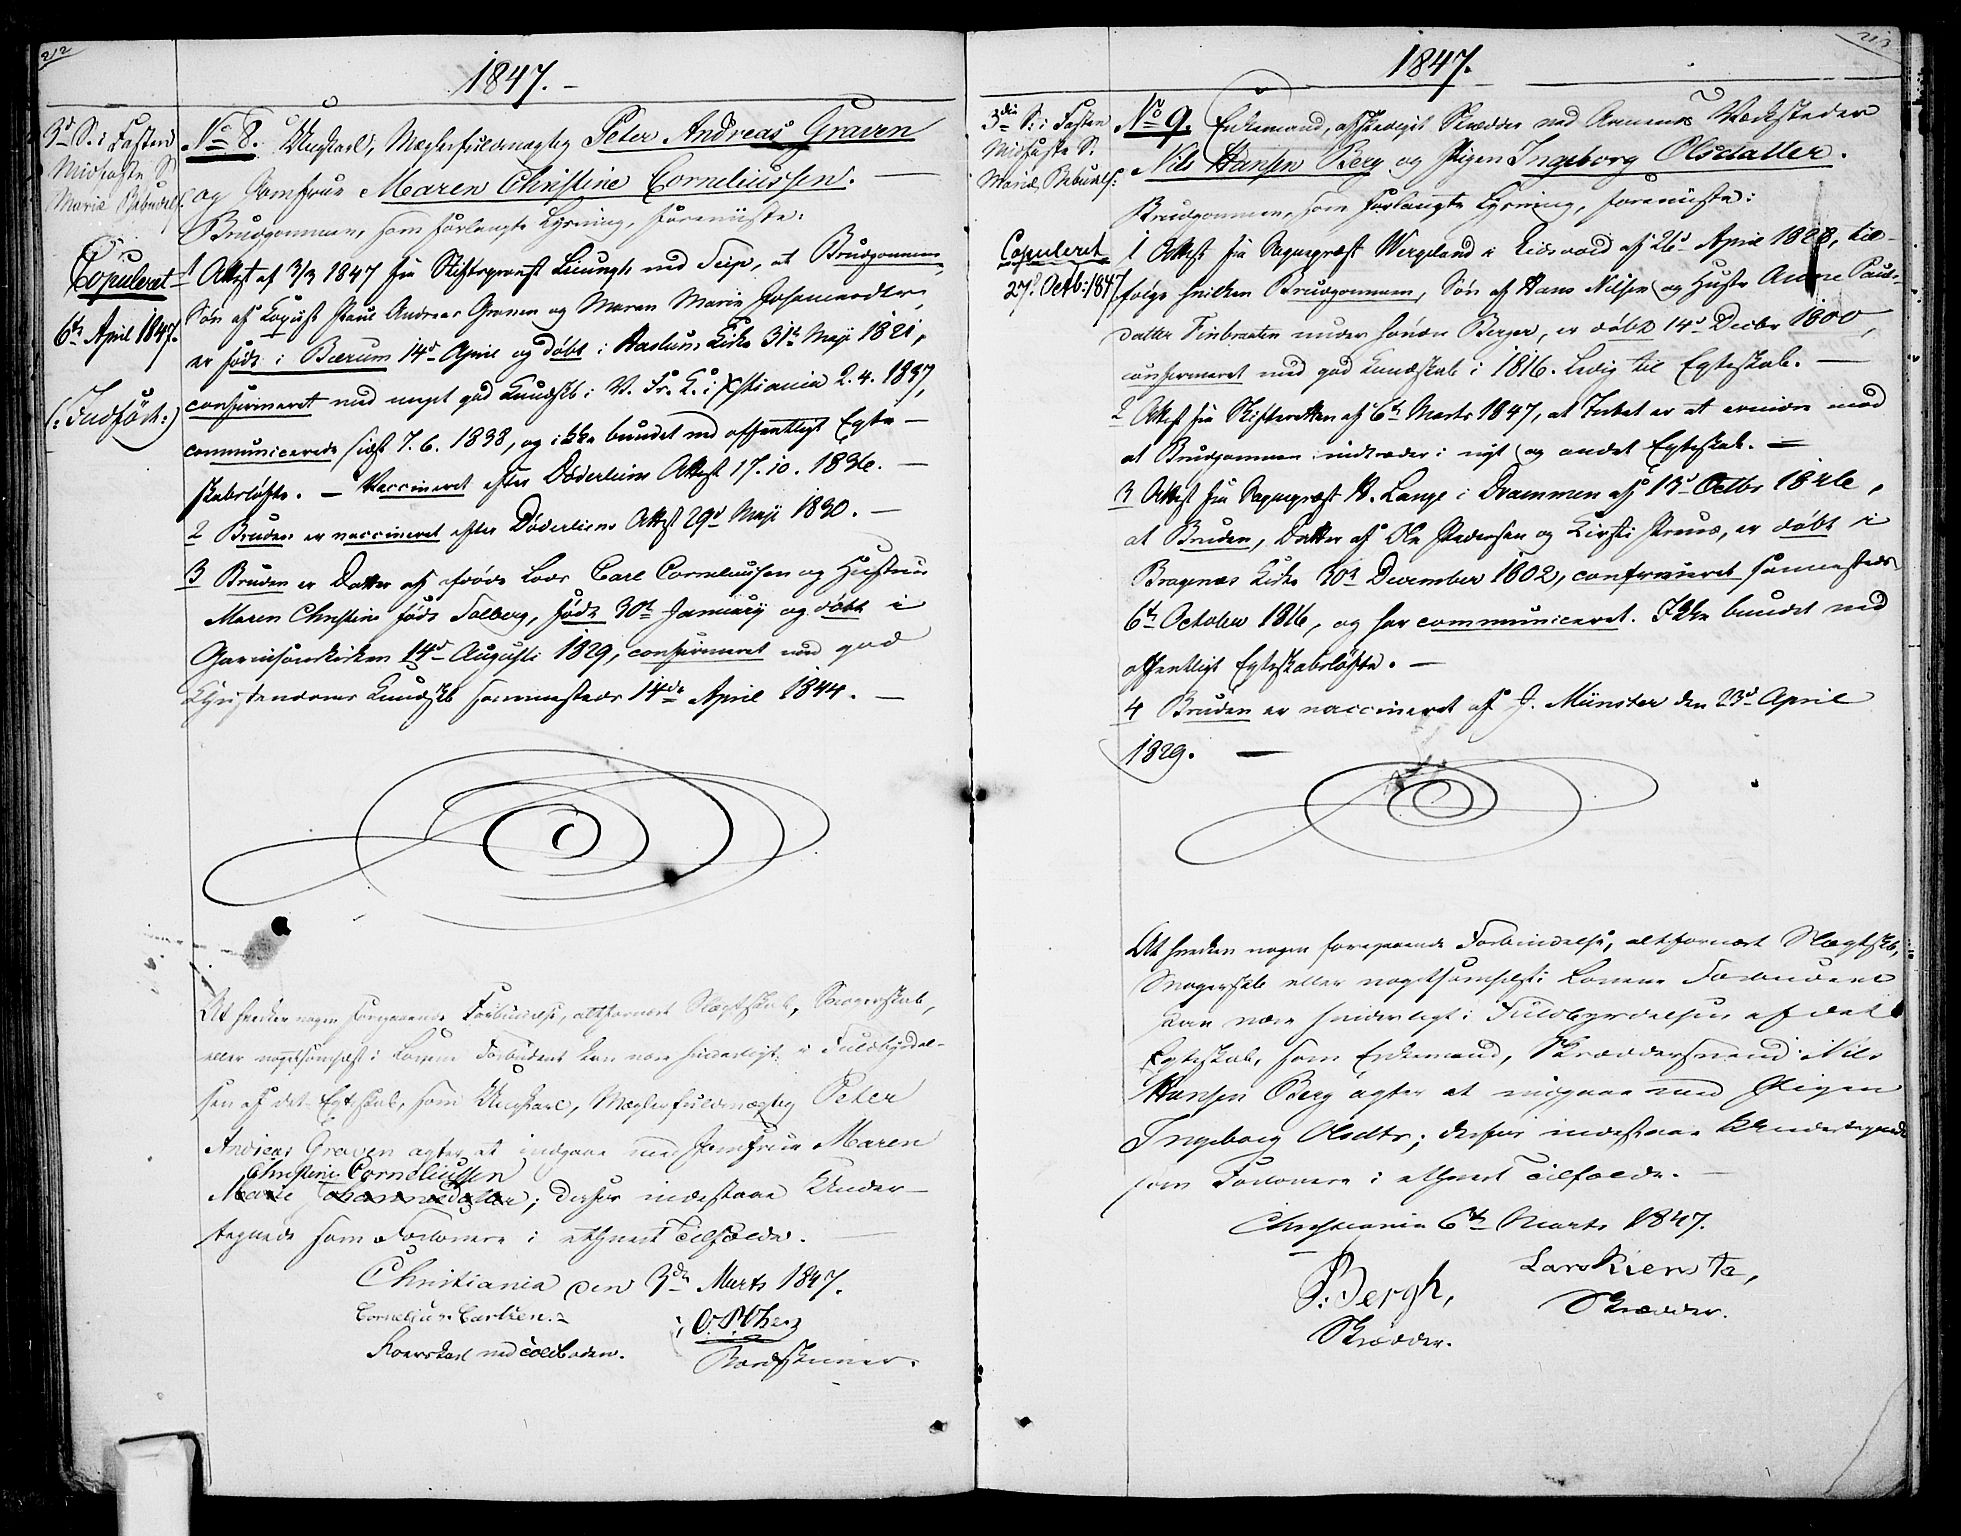 212
1847.-
3d S. i Fasten
Midfaste S.
Mariæ Bebudels:
Copuleret
6te April 1847.
(: Indført :)
No 8. Ungkarl, Mæglerfuldmægtig Peter Andreas Graven
og Jomfrue Maren Christine Corneliussen. —
Brudgommen, som forlangte Lysning, foreviiste:
1 Attest af 3/3 1847 fra Stiftsprovst at Brudgommen,
Søn af Paul Andreas Graven og Maren Marie
er født i Bærum 14d April og døbt i Haslum Kirke 31te Maji 1821,
confirmeret med meget god Kundskb i V. Fr. K. i Xstiania 2.4.1837,
communicerede sidst 7.6.1838, og ikke bundet ved offentligt Egte-
skabsløfte. — Vaccineret efter Døderleins Attest 17.10.1836. —
2 Bruden er vaccineret efter Døderleins Attest 29d Maji 1830. —
3 Bruden er Datter af Carl Corneliussen og Hustrue
Maren Christine født Solberg, født 30te January og døbt i
Garnisonskirken 14d Augusti 1829, confirmeret med god
Christendoms Kundskb sammesteds 14de April 1844. —
At hverken nogen foregaaende Forbindelse, altfornært Slægtskab, Svogerskab,
eller nogetsomhelst i Lovene Forbudent kan være hinderligt i Fuldbyrdel-
sen af det Egteskab, som Ungkarl, Mæglerfuldmægtig Peter
Andreas Graven agter at indgaae med Jomfrue Maren
Christine Corneliussen
Marie Johannesdatter; derfor indestaae Under-
tegnede som Forlovere i ethvert Tilfælde. —
Christiania den 3de Marts 1847.
Cornelius Carlsen.
ved Toldboden.
213
1847.
3die S: i Fasten
Midfaste S:
Mariæ Bebudels:
Copuleret
27d Octb: 1847
No 9. Enkemand, afskediget Skrædder ved Armeens Værksteder
Nils Hansen Berg og Pigen Ingeborg Olsdatter.
Brudgommen, som forlangte Lysning, foreviiste:
1 Attest fra Sognepræst Wergeland i Eidsvold af 26d April 1828, til-
følge hvilken Brudgommen, Søn af Hans Nilsen og Hustr Anne Pauls-
datter Finbraaten under Søndre Berger, er døbt 14d Decbr 1800,
confirmeret med god Kundskab i 1816. Ledig til Egteskab. —
2 Attest fra Skifteretten af 6te Marts 1847, at Intet er at erindre mod
at Brudgommen indtræder i nyt og andet Egteskab. —
3 Attest fra Sognepræst A. Lange i Drammen af 13d Octbr 1846,
at Bruden, Datter af Ole Pedersen og Kirsti er døbt i
Bragenæs Kirke 30d December 1802, confirmeret sammesteds
6te October 1816, og har communiceret. Ikke bundet ved
offentligt Egteskabsløfte. —
4 Bruden er vaccineret af J. Münster den 23d April
1829. —
At hverken nogen foregaaende Forbindelse, altfornært Slægtskb,
Svogerskb eller nogetsomhelst i Lovene Forbudent
kan være hinderligt i Fuldbyrdelsen af det
Egteskab, som Enkemand, Skræddersvend Nils
Hansen Berg agter at indgaae med Pigen
Ingeborg Olsdtr; derfor indestaae Undertegnede
som Forlovere i ethvert Tilfælde. —
Christiania 6te Marts 1847.
P. Bergh,
Skrædder.
Lars Kiensta,
Skrædder.